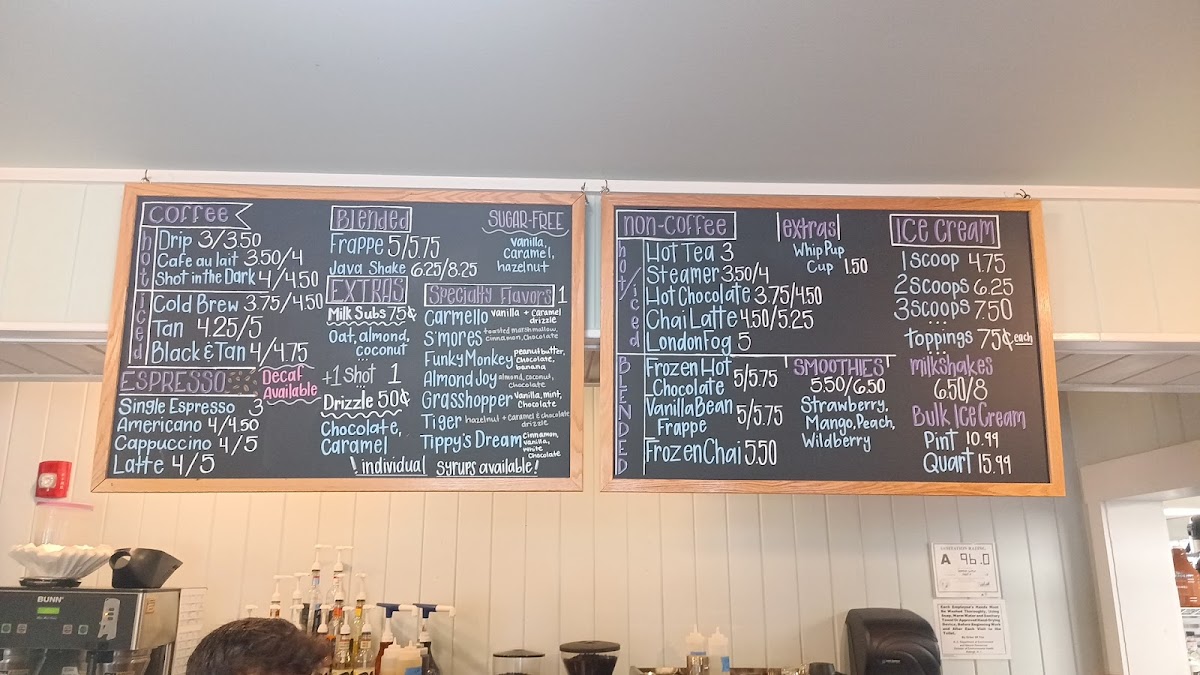 Coffee
hot
Drip 3/3.50
Cafe au lait 3.50/4
Shot in the Dark 4/4.50
iced
Cold Brew 3.75/4.50
Tan 4.25/5
Black & Tan 4/4.75
ESPRESSO
Decaf
Available
Single Espresso 3
Americano 4/4.50
Cappuccino 4/5
Latte 4/5
Blended
Frappe 5/5.75
Java Shake 6.25/8.25
EXTRAS
Milk Subs 75¢
Oat, almond,
coconut
+1 Shot 1
Drizzle 50¢
Chocolate,
Caramel
SUGAR-FREE
vanilla,
caramel,
hazelnut
Specialty Flavors 1
Carmello vanilla + caramel
drizzle
S'mores toasted marshmallow,
cinnamon, Chocolate
Funky Monkey peanut butter,
Chocolate,
banana
Almond Joy almond, coconut,
Chocolate
Grasshopper vanilla, mint,
Chocolate
Tiger hazelnut + Caramel & chocolate
drizzle
Tippy's Dream Cinnamon,
vanilla,
white
Chocolate
! individual syrups available!
non-coffee
hot/iced
Hot Tea 3
Steamer 3.50/4
Hot Chocolate 3.75/4.50
Chai Latte 4.50/5.25
London Fog 5
extras
Whip Pup
Cup 1.50
BLENDED
Frozen Hot
Chocolate 5/5.75
Vanilla Bean
Frappe 5/5.75
Frozen Chai 5.50
SMOOTHIES
5.50/6.50
Strawberry,
Mango, Peach,
Wildberry
Ice Cream
1 Scoop 4.75
2 Scoops 6.25
3 Scoops 7.50
toppings 75¢ each
milkshakes
6.50/8
Bulk Ice Cream
Pint 10.99
Quart 15.99
BUNN
A 96.0
Each Employee's Hands Must
Be Washed Thoroughly, Using
Soap, Warm Water and Sanitary
Towel Or Approved Hand Drying
Device, Before Beginning Work
and After Each Visit to the
Toilet.